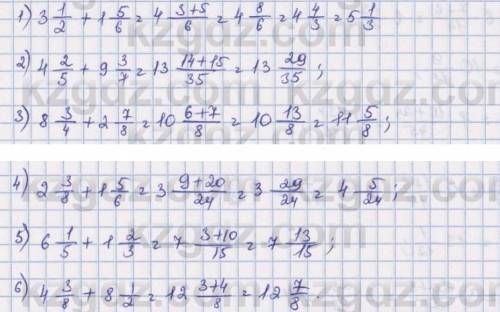 1) 3 1/2 + 1 5/6 = 4 3+5/6 = 4 8/6 = 4 4/3 = 5 1/3
2) 4 2/5 + 9 3/7 = 13 14+15/35 = 13 29/35 ;
3) 8 3/4 + 2 7/8 = 10 6+7/8 = 10 13/8 = 11 5/8 ;
4) 2 3/8 + 1 5/6 = 3 9+20/24 = 3 29/24 = 4 5/24 ;
5) 6 1/5 + 1 2/3 = 7 3+10/15 = 7 13/15 ;
6) 4 3/8 + 8 1/2 = 12 3+4/8 = 12 7/8 .